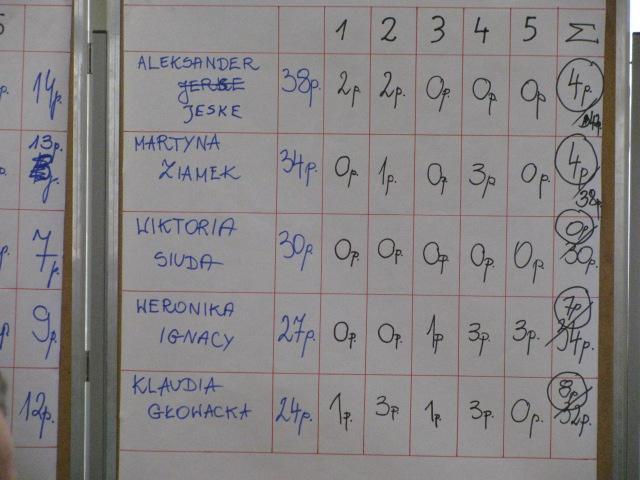 1 2 3 4 5 Σ
ALEKSANDER
JESKE 38p. 2p. 2p. 0p. 0p. 0p. 4p.
14p.
MARTYNA
ZIAMEK 34p. 0p. 1p. 0p. 3p. 0p. 4p. 38p.
13p.
WIKTORIA
SIUDA 30p. 0p. 0p. 0p. 0p. 0p. 0p. 30p.
7p.
WERONIKA
IGNACY 27p. 0p. 0p. 1p. 3p. 3p. 7p. 34p.
9p.
KLAUDIA
GŁOWACKA 24p. 1p. 3p. 1p. 3p. 0p. 8p. 32p.
12p.